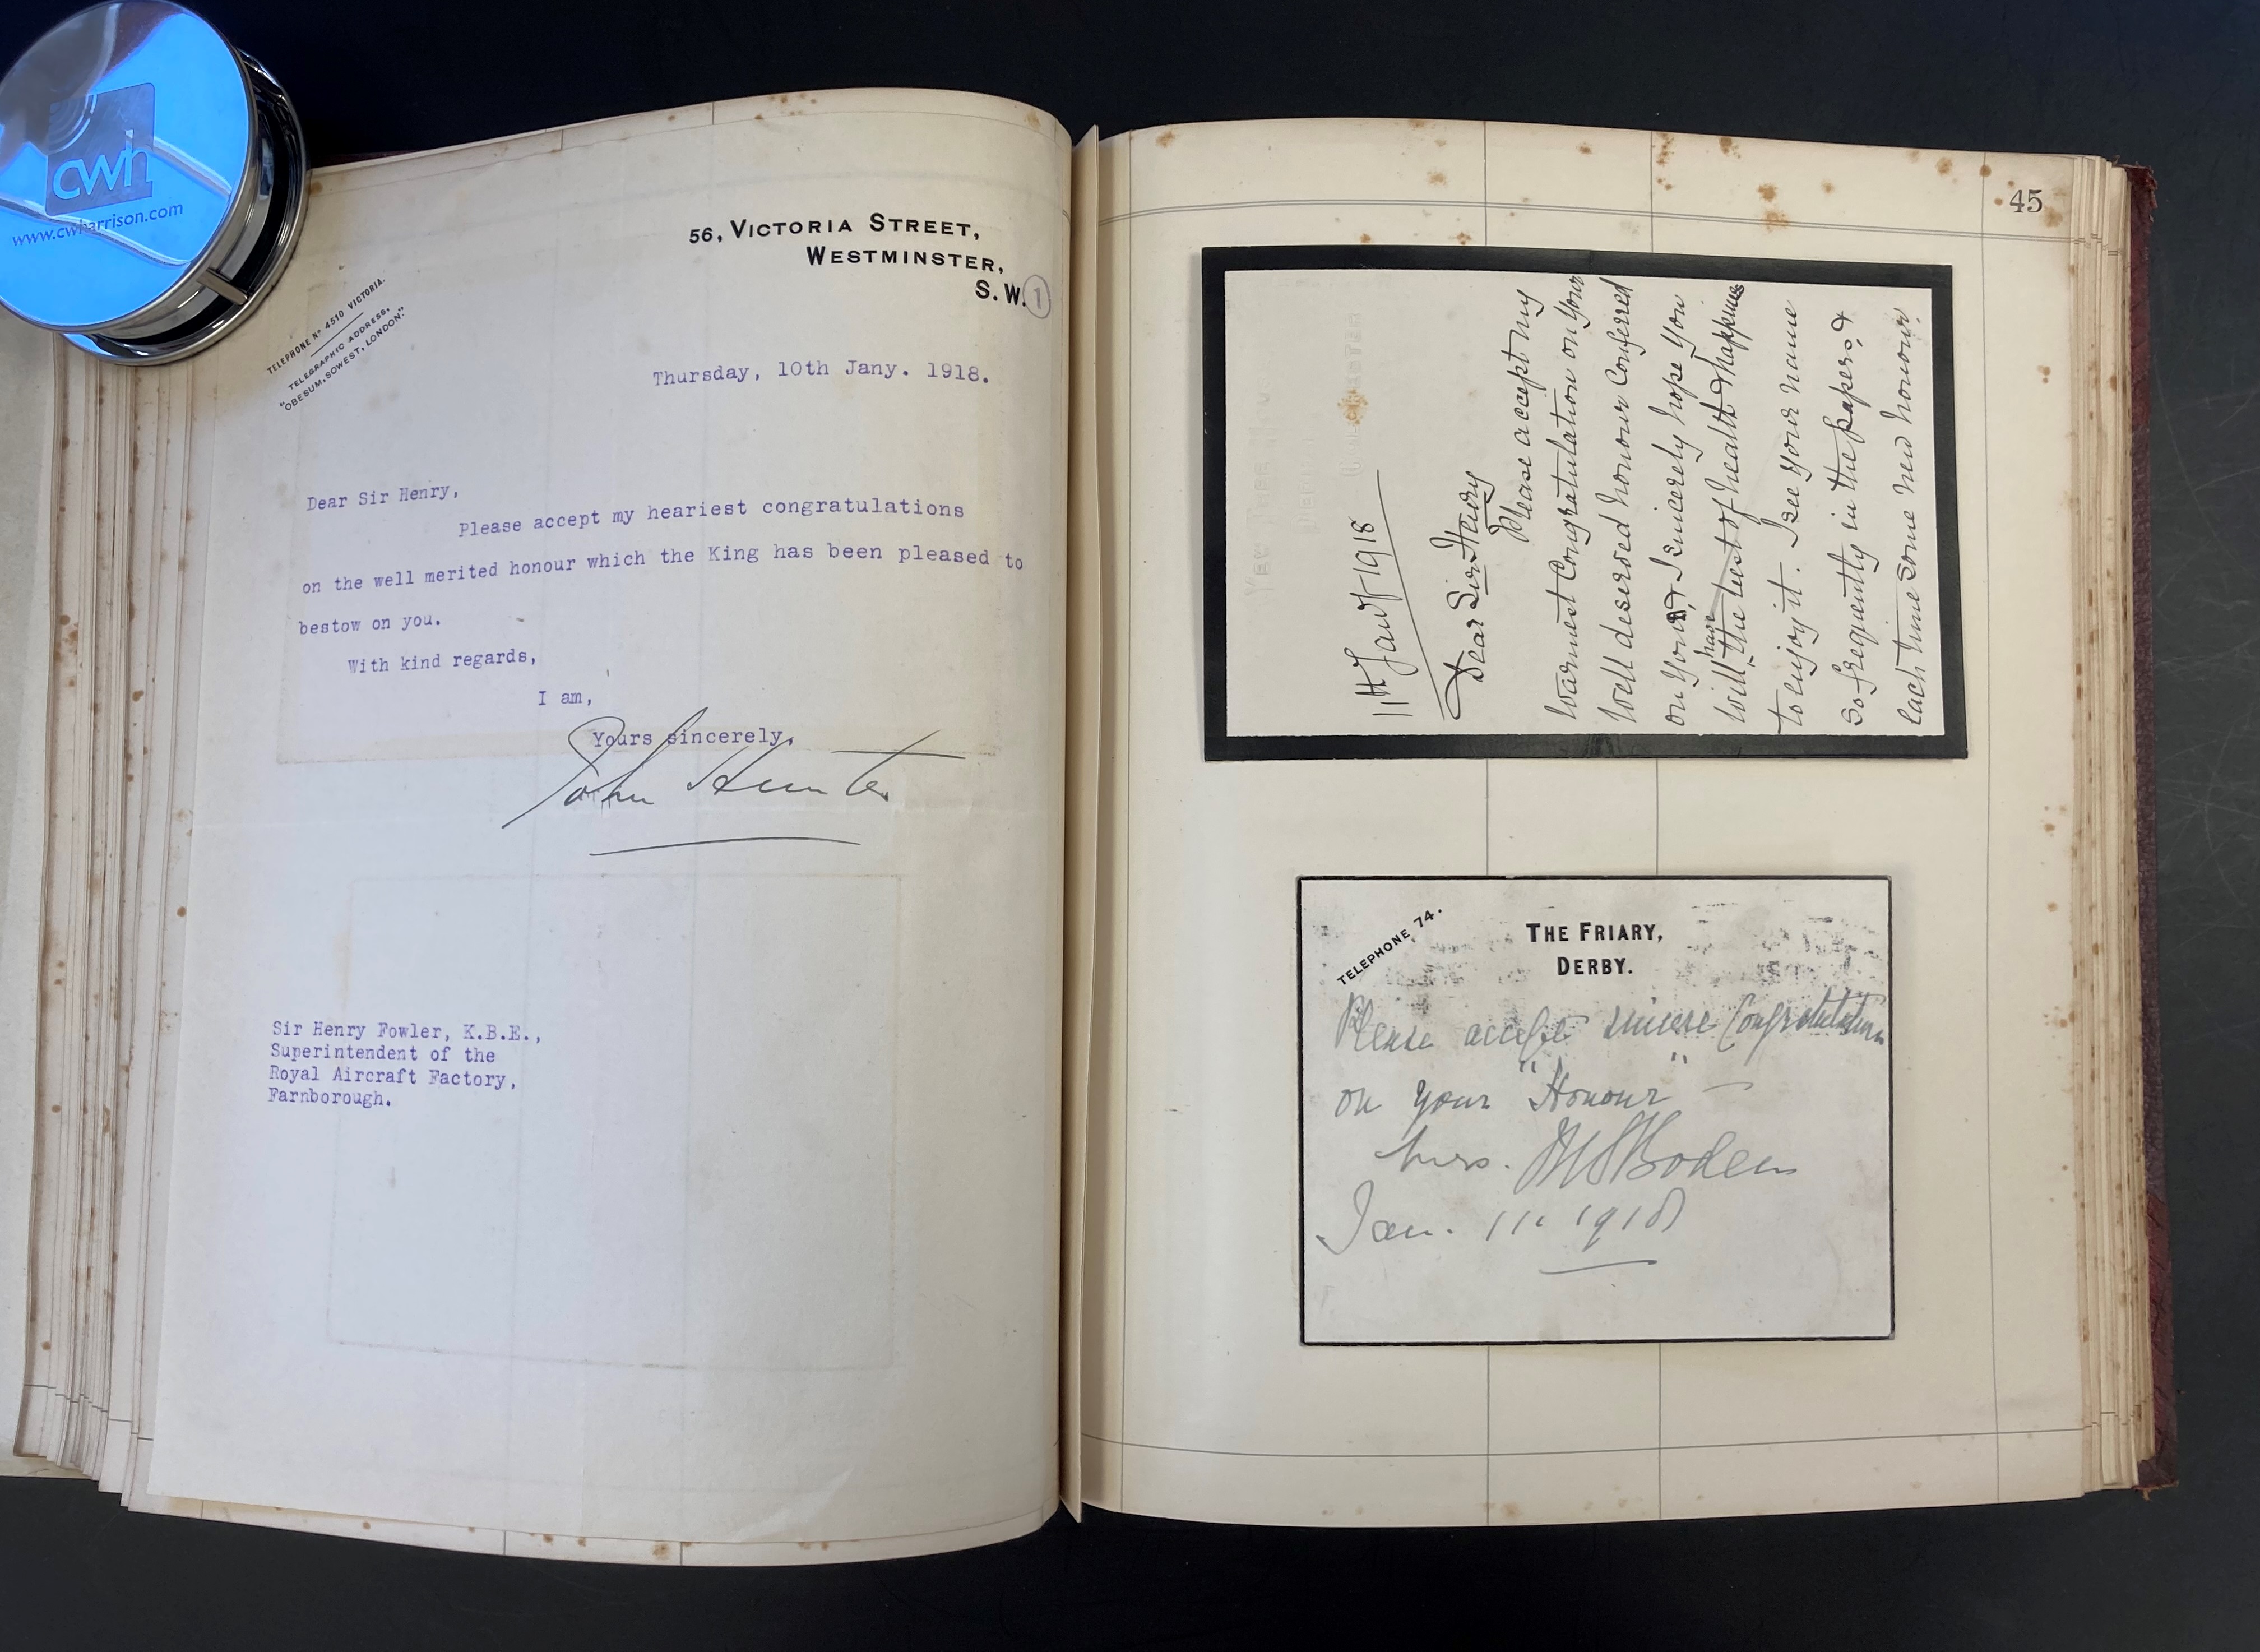 cwh
www.cwharrison.com
56, VICTORIA STREET,
WESTMINSTER,
S.W.1
TELEPHONE No 4510 VICTORIA.
TELEGRAPHIC ADDRESS,
"OBESUM, SOWEST, LONDON."
Thursday, 10th Jany. 1918.
Dear Sir Henry,
Please accept my heariest congratulations
on the well merited honour which the King has been pleased to
bestow on you.
With kind regards,
I am,
Yours sincerely,
John Hunter
Sir Henry Fowler, K.B.E.,
Superintendent of the
Royal Aircraft Factory,
Farnborough.
45
11th Jany 1918
Dear Sir Henry
Please accept my
warmest Congratulation on your
well deserved honour Conferred
on you, & I sincerely hope you
will have the best of health & happiness
to enjoy it. I see your name
so frequently in the papers, &
each time some new honour.
TELEPHONE 74.
THE FRIARY,
DERBY.
Please accept sincere Congratulations
on your "Honour" —
Mrs. Boden
Jan. 11. 1918